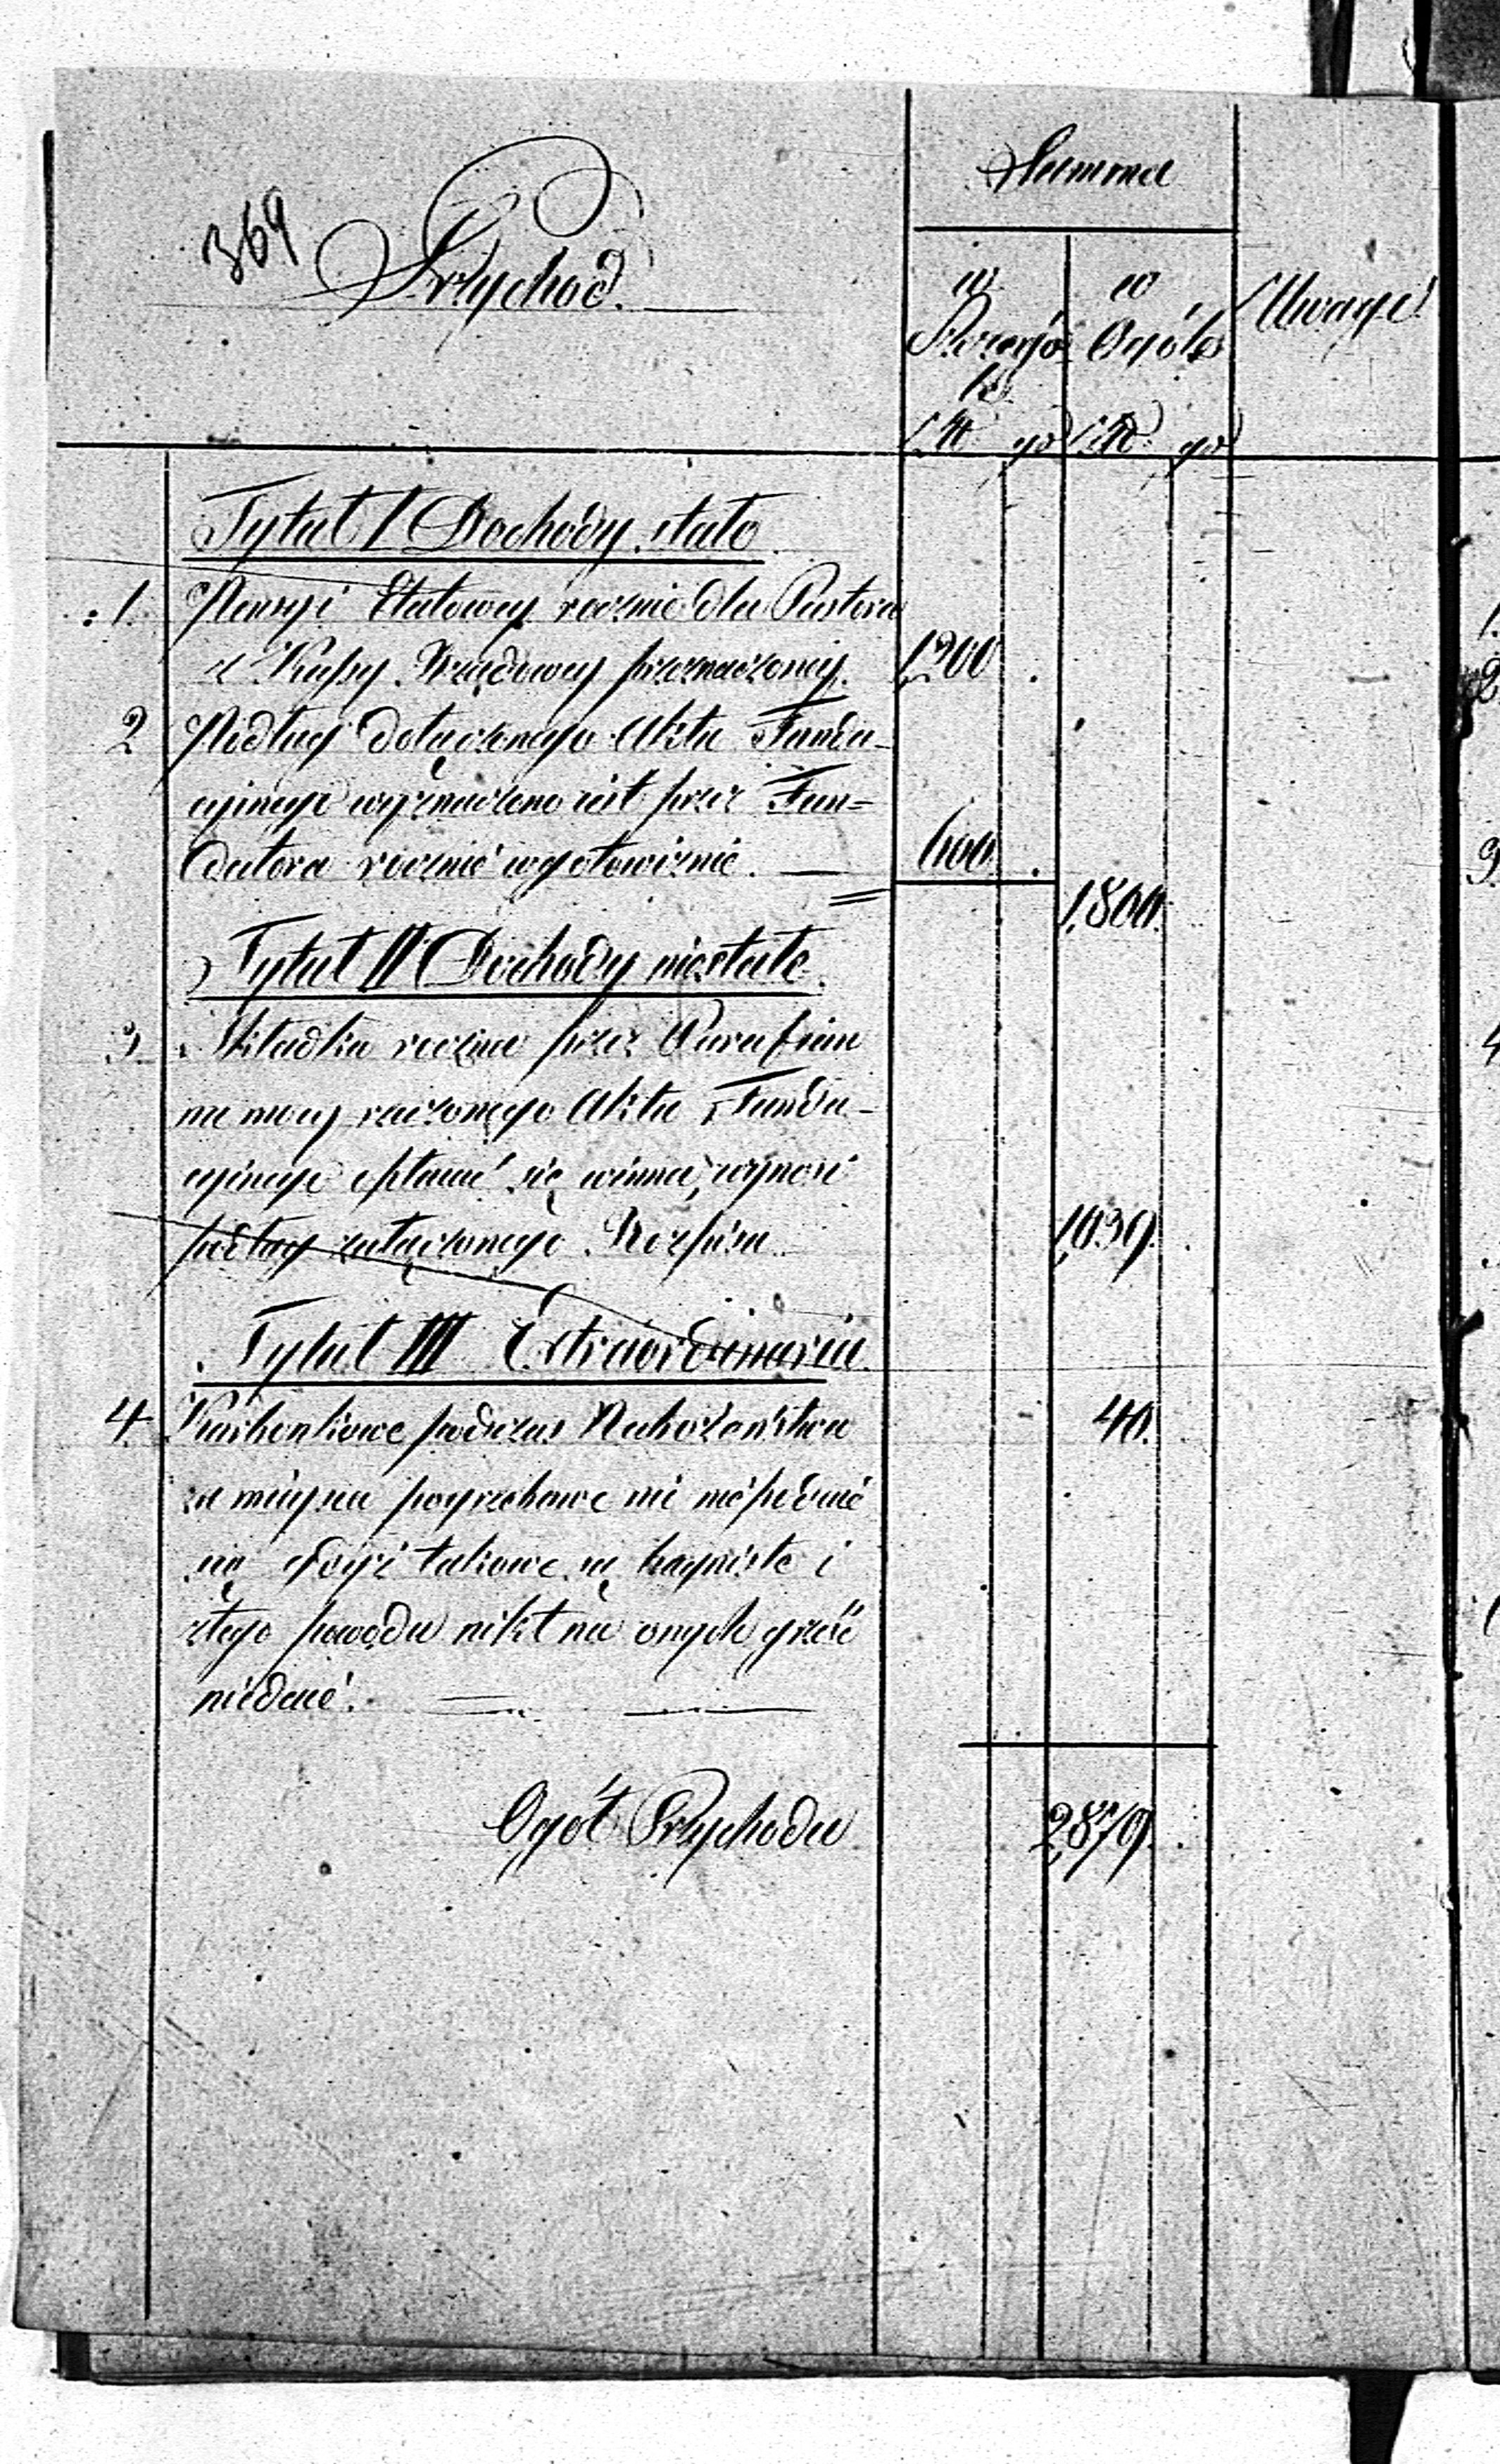 369
Przychód.
Summa
w
Szczegó
le
w
Ogóle
Uwagi
Złt gr Złt gr
Tytuł I Dochody stałe
1. Pensyi Etatowey rocznie dla Pastora
z Kassy Rządowey przeznaczoney. 1,200
2 Podług dołączonego Aktu Funda-
cyinego wyznaczono iest przez Fun=
datora rocznie w gotowiznie. 600
1,800
Tytuł II Dochody niestałe.
3. Składka roczna przez Parafian
na mocy rzeczonego Aktu Funda-
cyinego opłacać się winna, wynosi
podług załączonego Rozpisu 1,039.
Tytuł III Extraordinaria.
4. Karbonkowe podczas Nabożeństwa 40.
za mieysca pogrzebowe nic
się gdyż takowe są bagniste i
z tego powodu nikt na onych grześć
niedaie.
Ogół Przychodu 2,879.